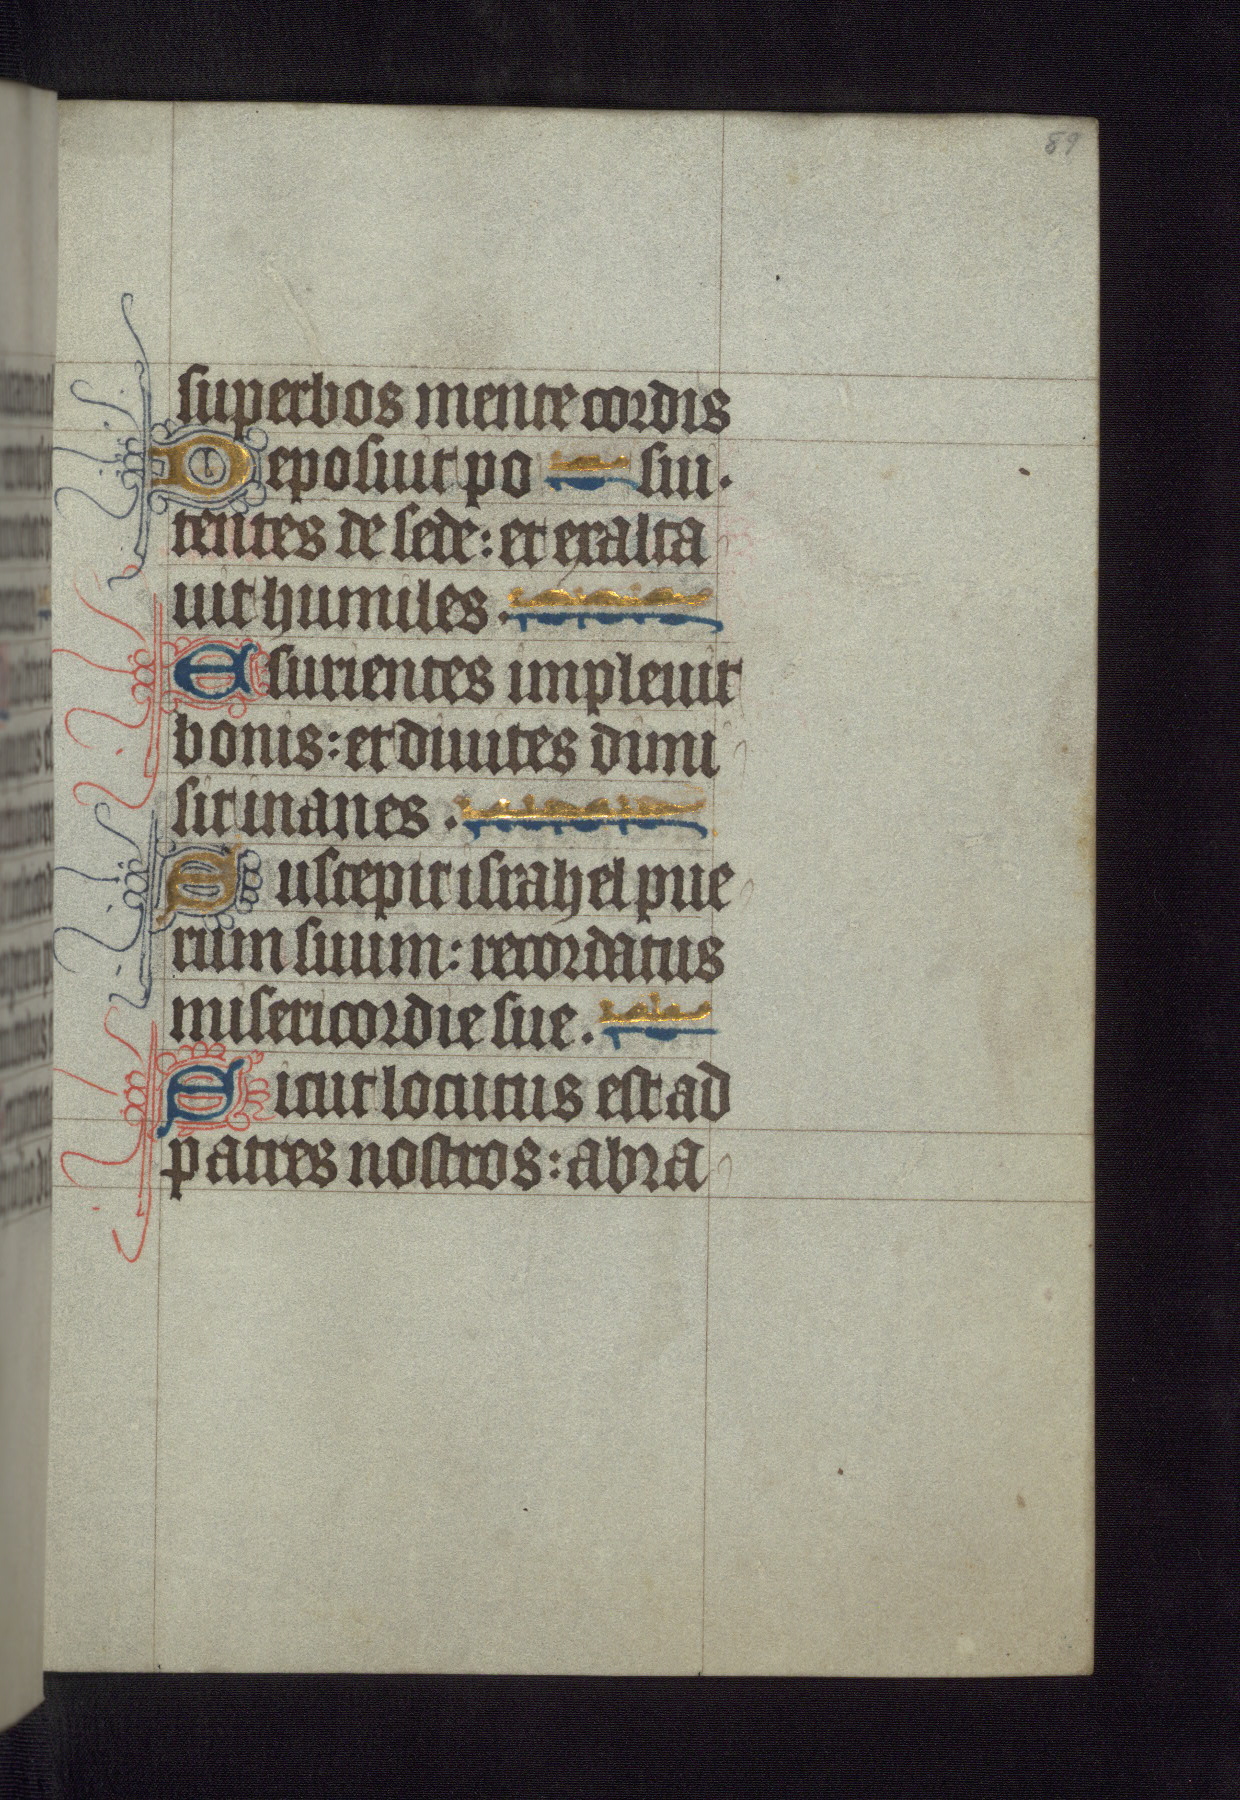 89
superbos mente cordis
Deposuit po sui.
tentes de sede: et exalta
uit humiles.
Esurientes impleuit
bonis: et diuites dimi
sit inanes.
Suscepit israhel pue
rum suum: recordatus
misericordie sue.
Sicut locutus est ad
patres nostros: abra